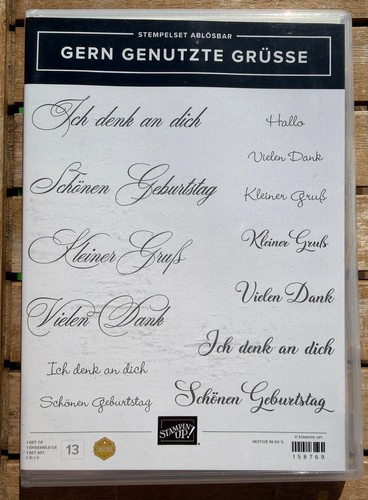 STEMPELSET ABLÖSBAR
GERN GENUTZTE GRÜSSE
Ich denk an dich
Schönen Geburtstag
Kleiner Gruß
Vielen Dank
Ich denk an dich
Schönen Geburtstag
Hallo
Vielen Dank
Kleiner Gruß
Kleiner Gruß
Vielen Dank
Ich denk an dich
Schönen Geburtstag
1 SET OF
1 ENSEMBLE DE
1 SET MIT
13
STAMPIN' UP!
MOTIVE IN 50 %
© STAMPIN' UP!
158769